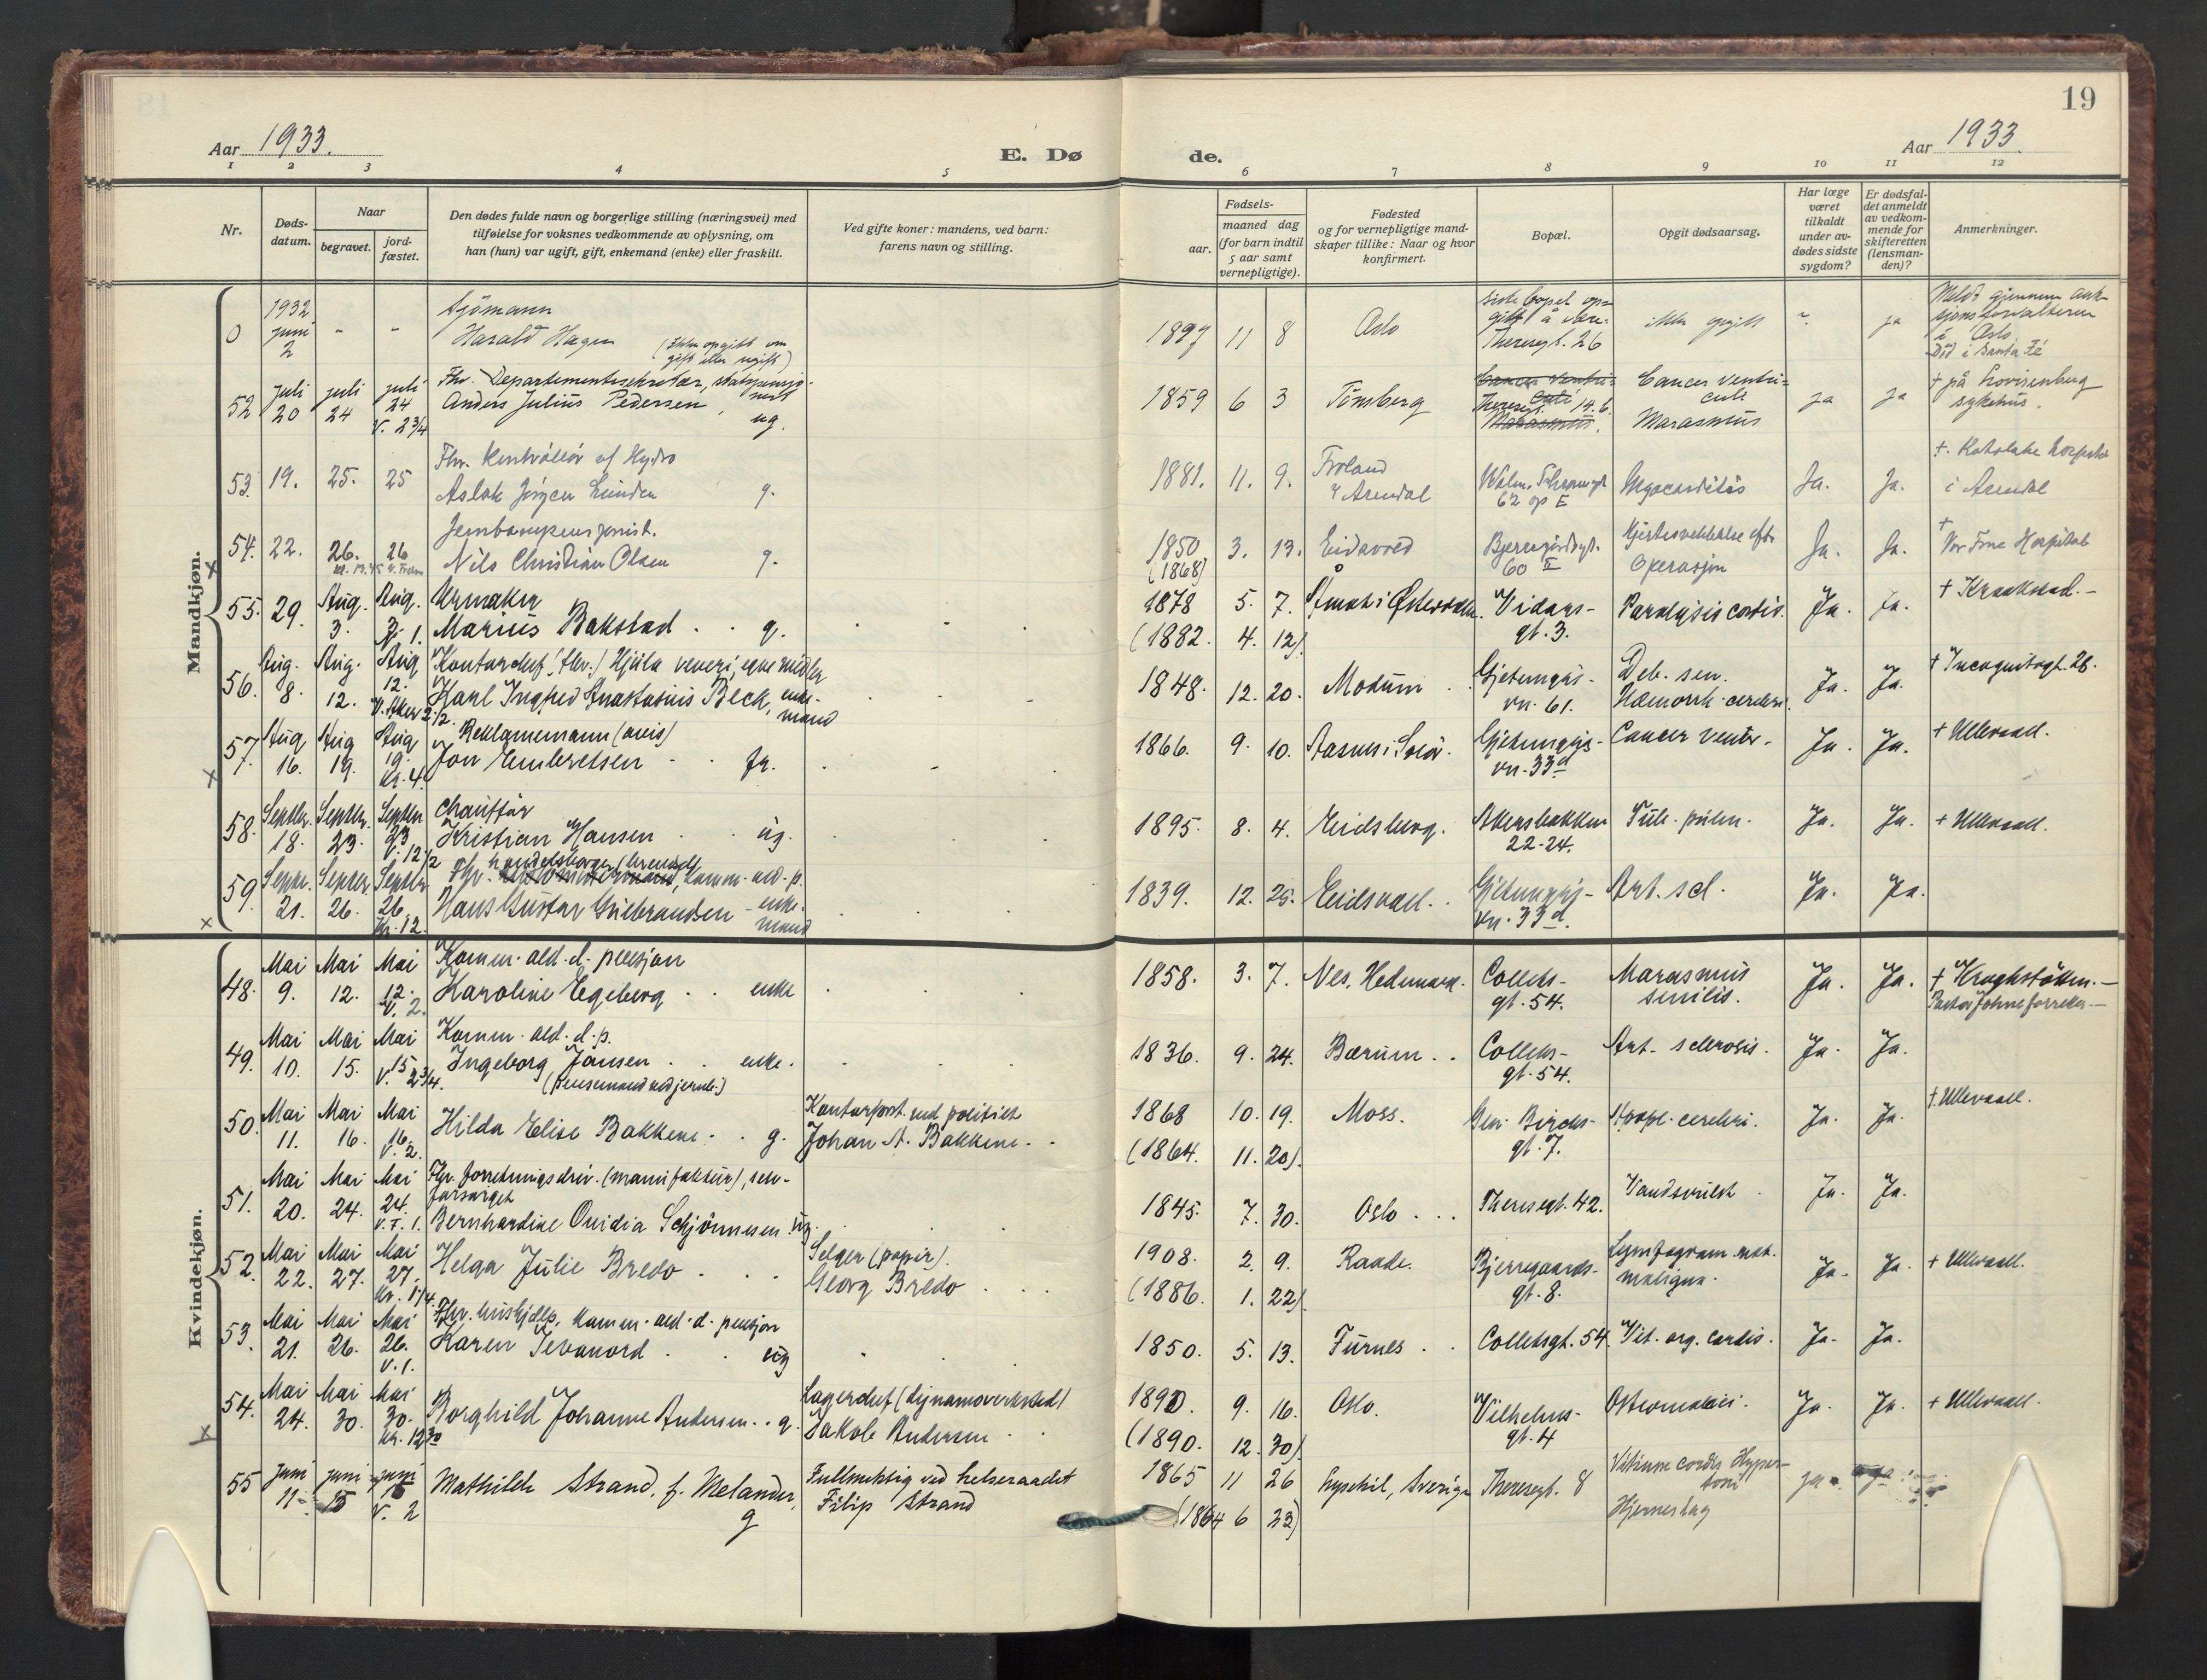 19
Aar 1933.
E. Dø
de.
Aar 1933.
1 2 3 4 5 6 7 8 9 10 11 12
Nr.
Døds-
datum.
Naar
begravet.
jord-
fæstet.
Den dødes fulde navn og borgerlige stilling (næringsvei) med
tilføielse for voksnes vedkommende av oplysning, om
han (hun) var ugift, gift, enkemand (enke) eller fraskilt.
Ved gifte koner: mandens, ved barn:
farens navn og stilling.
Fødsels-
aar.
maaned dag
(for barn indtil
5 aar samt
vernepligtige).
Fødested
og for vernepligtige mand-
skaper tillike: Naar og hvor
konfirmert.
Bopæl.
Opgit dødsaarsag.
Har læge
været
tilkaldt
under av-
dødes sidste
sygdom?
Er dødsfal-
det anmeldt
av vedkom-
mende for
skifteretten
(lensman-
den)?
Anmerkninger.
Mandkjøn.
0 1932 juni 2 - -
Sjömann
Harald Hagen (Ikke opgitt om
gift eller ugift)
1897 11 8 Oslo
siste bopel op-
gitt å være
Theresegt. 26
ikke opgitt ? ja
Meldt gjennem auk-
sjonsforvalteren
i Oslo.
Död i Santa Fé
52 juli 20 juli 24 juli 24 V. 2 3/4
Fhv. Departementssekretær, statspensjo-
nert
Anders Julius Pedersen, ug.
1859 6 3 Tönsberg
Theresgt. 14.b.
Cancer ventri-
culi
Marasmus
ja ja
+ på Lovisenberg
sykehus.
53. 19. 25. 25
Fhv. Kontrollör af Hydro
Aslak Jörgen Lunden g.
1881. 11. 9. Froland
v/ Arendal
62 op E
Ja. Ja.
i Arendal
54. 22. 26. 26
Nils Christian Olsen g.
1850 3. 13.
(1868)
Bjerregårdsgt.
60 II
Operasjon
Ja. Ja.
+
Vor Frue Hospital
x
55. 29. Aug. 3. Aug. 3. Kr. 1.
Urmaker
Marius Bakstad g.
1878 5. 7. Åmot i Østerdalen. Vidars-
gt. 3.
Paralysis cordis. Ja. Ja. + Kraakstad.-
(1882. 4. 12).
56. Aug. 8. Aug. 12. Aug 12. V. Aker 2 1/2.
Kontorchef (fhv.) Hjula veveri, egne midler
Karl Ingfred Anastasius Beck, enke-
mand
1848. 12. 20. Modum. Gjetemyrs-
vn. 61.
Deb. sen.
Hæmorrh. cerebri.
Ja. Ja. + Incognitogt. 28.
57. Aug 16. Aug 19. Aug 19. Kr. 4.
Reklamemann (avis)
Jon Embretsen fr.
1866. 9. 10. Aasnes i Solör. Gjetemyrs-
vn. 33d
Cancer ventr. Ja. Ja. + Ullevaal.
x
58. Septbr. 18. Septbr. 23. Septbr 23 V. 12 1/2
Chaufför
Kristian Hansen ug.
1895. 8. 4. Eidsberg. Akersbakken
22-24.
Tub. pulm. Ja. Ja. + Ullevaal.
59. Septbr. 21. Septbr 26. Septbr 26. Kr. 12.
Hans Gustav Gulbrandsen - enke-
mand
1839. 12. 25. Eidsvoll. Gjetemyrs-
vn. 33d.
Art. scl. Ja. Ja.
x
Kvindekjøn.
48. Mai 9. Mai 12. Mai 12. V. 2.
Komm. ald. d. pensjon
Karoline Egeberg enke
1858. 3. 7. Nes, Hedemark. Collets-
gt. 54.
Marasmus
senilis.
Ja. Ja. + Kroghstøtten.-
49. Mai 10. Mai 15. Mai 15 V. 2 3/4.
Komm. ald. d. p.
Ingeborg Jansen enke.
1836. 9. 24. Bærum. Collets-
gt. 54.
Art. sclerosis. Ja. Ja.
50. Mai 11. Mai 16. Mai 16. V. 2.
Hilda Elise Bakkene g.
Kontorfost. ved politiet
Johan A. Bakkene.
1868 10. 19. Moss. Gen. Birchs-
gt. 7.
Apopl. cerebri. Ja. Ja. + Ullevaal.
(1864. 11. 20).
51. Mai 20. Mai 24. Mai 24. V.F. 1.
Fhv. forretningsdriv. (manufaktur), selv-
forsørget
Bernhardine Ovidia Schjönnesen ug.
1845. 7. 30. Oslo Theresegt. 42. Ja. Ja.
52. Mai 22. Mai 27. Mai 27. Kr. 1 1/4.
Helga Julie Bredo
Selger (papir).
Georg Bredo
1908. 2. 9. Raade. Bjerregaards-
gt. 8.
maligna.
Ja. Ja. + Ullevaal.
(1886. 1. 22).
53. Mai 21. Mai 26. Mai 26. V. 1.
Fhv. hushjelp, komm. ald. d. pensjon
Karen Tevanord ug
1850. 5. 13. Furnes Colletsgt. 54. Vit. org. cordis. Ja. Ja.
54. Mai 24. Mai 30. Mai 30. Kr. 12 30
Borghild Johanne Andersen g.
Lagerchef (dynamoverksted)
Jakob Andersen
1890. 9. 16. Oslo. Vilhelms-
gt. 4
Osteomalaci. Ja. Ja. + Ullevaal.
(1890. 12. 30).
x
55 juni 11 juni 15 juni 15 V. 2
Mathilde Strand, f. Melander,
g
Fullmektig ved helseraadet
Filip Strand
1865 11 26 Lysekil, Sverige Theresegt. 8
Vitium cordis Hyper-
toni
Hjerneslag
ja
(1864 6 23)